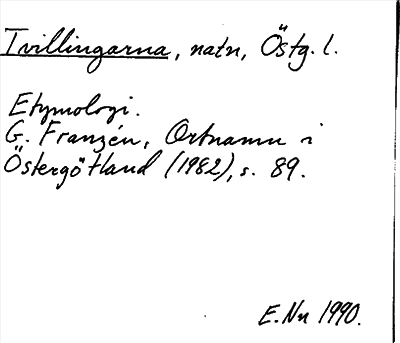 Tvillingarna, natn, Östg. l.
Etymologi.
G. Franzén, Ortnamn i
Östergötland (1982), s. 89.
E. Nn 1990.